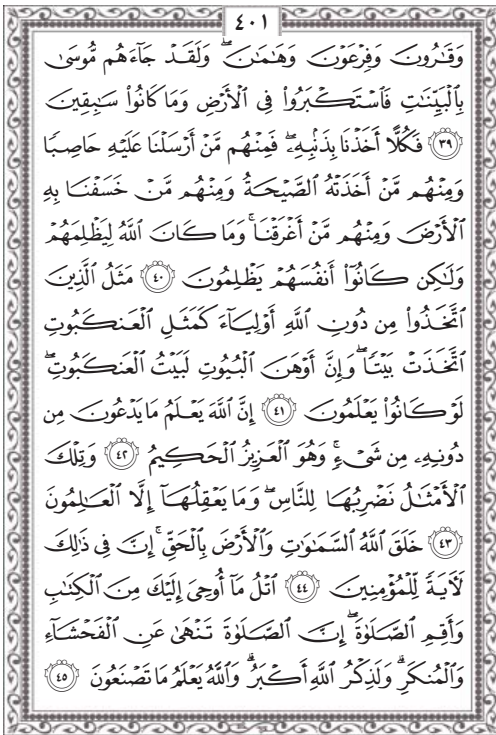 ٤٠١
وَقَٰرُونَ وَفِرْعَوْنَ وَهَٰمَٰنَ ۖ وَلَقَدْ جَآءَهُم مُّوسَىٰ
بِٱلْبَيِّنَٰتِ فَٱسْتَكْبَرُوا۟ فِى ٱلْأَرْضِ وَمَا كَانُوا۟ سَٰبِقِينَ
﴿٣٩﴾ فَكُلًّا أَخَذْنَا بِذَنۢبِهِۦ ۖ فَمِنْهُم مَّنْ أَرْسَلْنَا عَلَيْهِ حَاصِبًا
وَمِنْهُم مَّنْ أَخَذَتْهُ ٱلصَّيْحَةُ وَمِنْهُم مَّنْ خَسَفْنَا بِهِ
ٱلْأَرْضَ وَمِنْهُم مَّنْ أَغْرَقْنَا ۚ وَمَا كَانَ ٱللَّهُ لِيَظْلِمَهُمْ
وَلَٰكِن كَانُوٓا۟ أَنفُسَهُمْ يَظْلِمُونَ ﴿٤٠﴾ مَثَلُ ٱلَّذِينَ
ٱتَّخَذُوا۟ مِن دُونِ ٱللَّهِ أَوْلِيَآءَ كَمَثَلِ ٱلْعَنكَبُوتِ
ٱتَّخَذَتْ بَيْتًا ۖ وَإِنَّ أَوْهَنَ ٱلْبُيُوتِ لَبَيْتُ ٱلْعَنكَبُوتِ ۖ
لَوْ كَانُوا۟ يَعْلَمُونَ ﴿٤١﴾ إِنَّ ٱللَّهَ يَعْلَمُ مَا يَدْعُونَ مِن
دُونِهِۦ مِن شَىْءٍ ۚ وَهُوَ ٱلْعَزِيزُ ٱلْحَكِيمُ ﴿٤٢﴾ وَتِلْكَ
ٱلْأَمْثَٰلُ نَضْرِبُهَا لِلنَّاسِ ۖ وَمَا يَعْقِلُهَآ إِلَّا ٱلْعَٰلِمُونَ
﴿٤٣﴾ خَلَقَ ٱللَّهُ ٱلسَّمَٰوَٰتِ وَٱلْأَرْضَ بِٱلْحَقِّ ۚ إِنَّ فِى ذَٰلِكَ
لَءَايَةً لِّلْمُؤْمِنِينَ ﴿٤٤﴾ ٱتْلُ مَآ أُوحِىَ إِلَيْكَ مِنَ ٱلْكِتَٰبِ
وَأَقِمِ ٱلصَّلَوٰةَ ۖ إِنَّ ٱلصَّلَوٰةَ تَنْهَىٰ عَنِ ٱلْفَحْشَآءِ
وَٱلْمُنكَرِ ۗ وَلَذِكْرُ ٱللَّهِ أَكْبَرُ ۗ وَٱللَّهُ يَعْلَمُ مَا تَصْنَعُونَ ﴿٤٥﴾